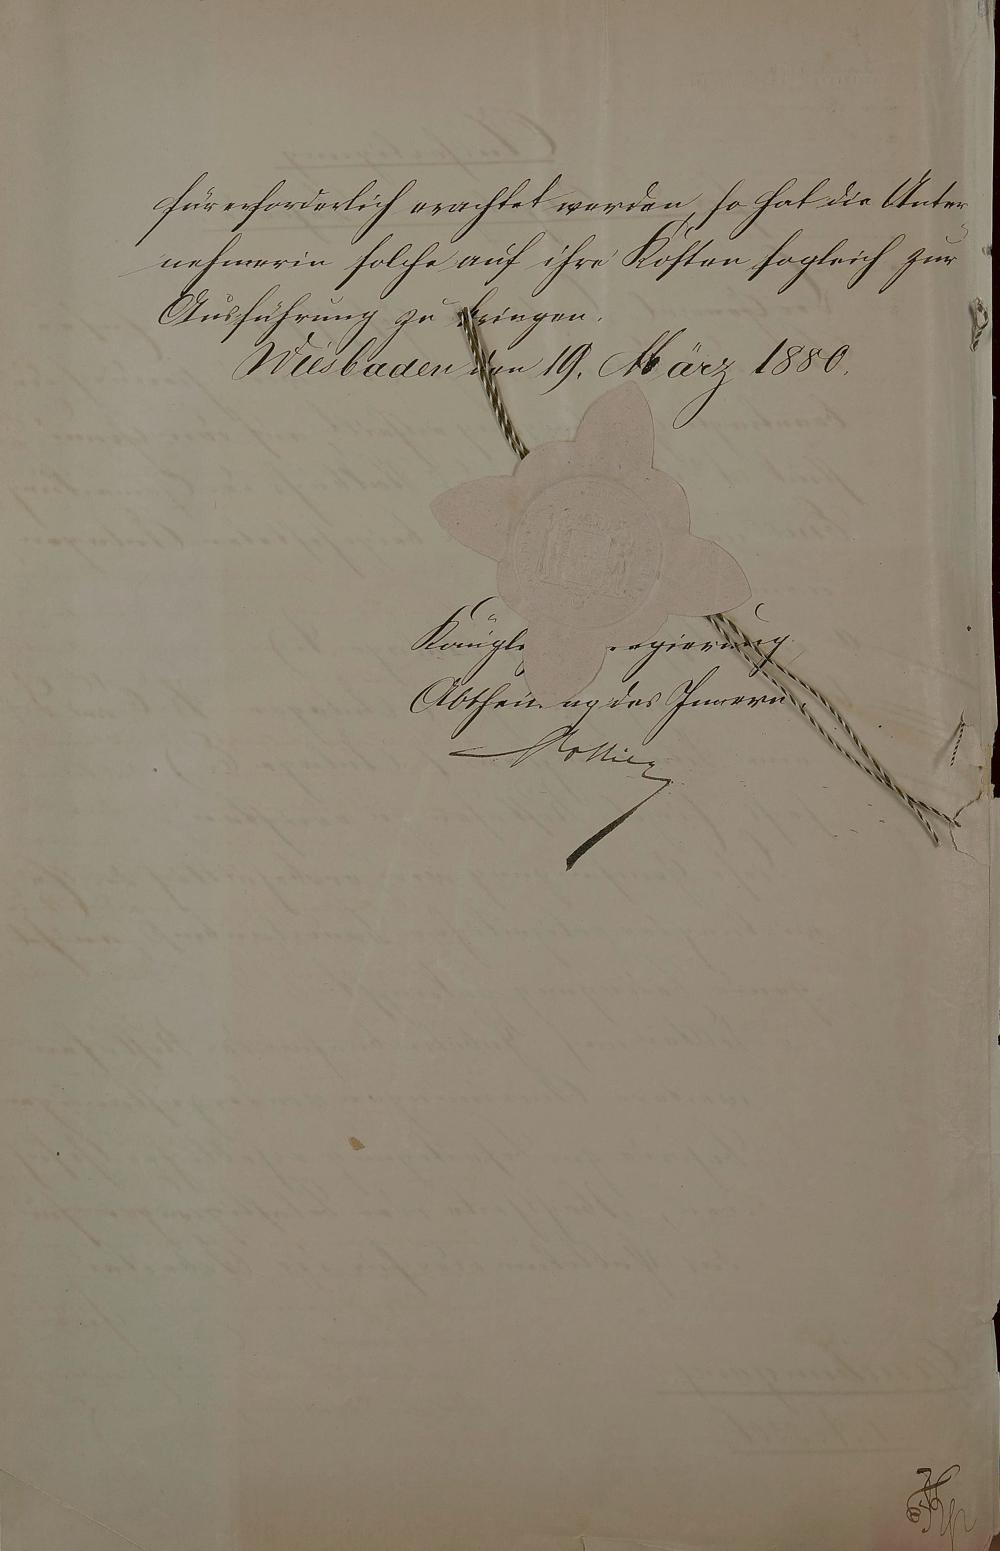 für erforderlich erachtet werden, so hat die Unter
nehmerin solche auf ihre Kosten sogleich zur
Ausführung zu bringen.
Wiesbaden den 19. März 1880.
Königl regierung
Abtheilung des Innern.